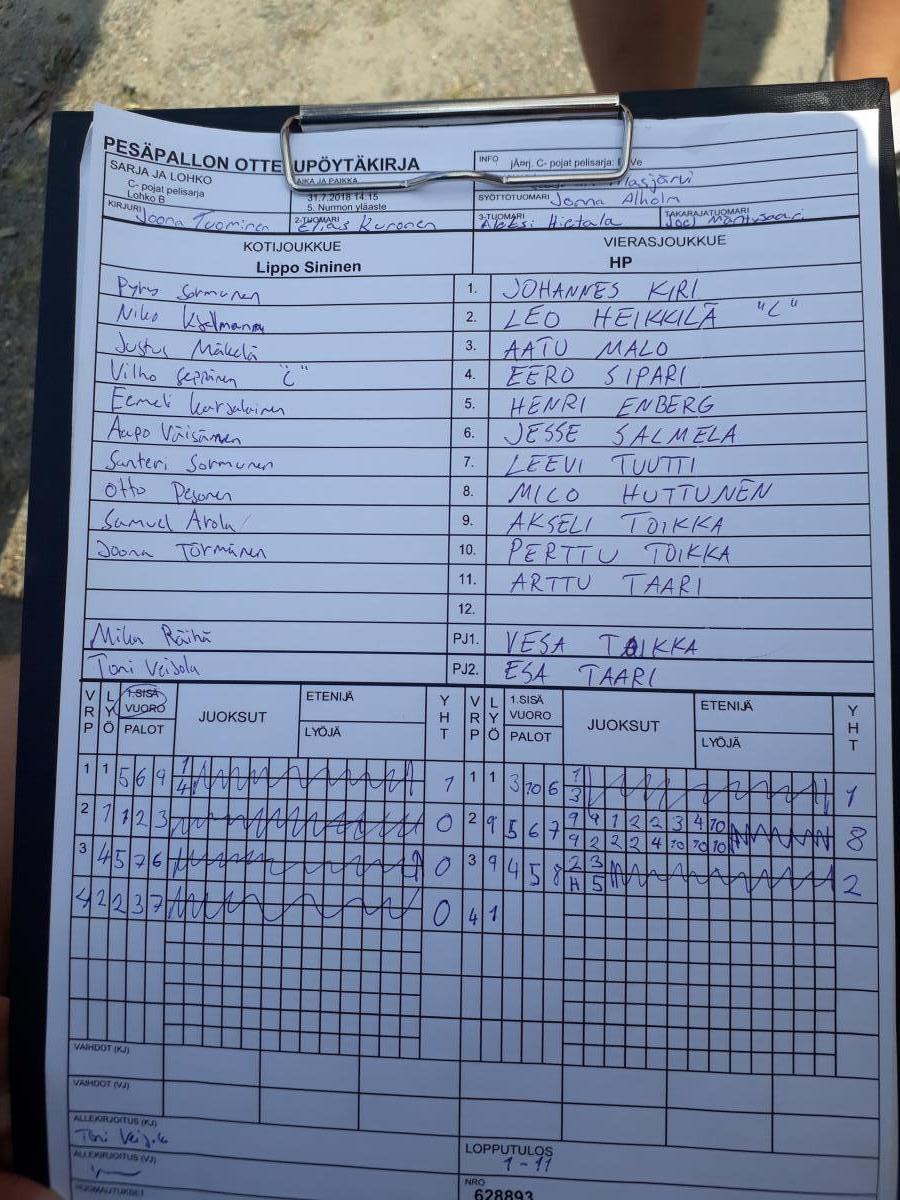 PESÄPALLON OTTE UPÖYTÄKIRJA
INFO jÄ¤rj. C- pojat pelisarja:
SARJA JA LOHKO
C- pojat pelisarja
Lohko B
AIKA JA PAIKKA
31.7.2018 14.15
5. Nurmon yläaste
SYÖTTÖTUOMARI Jonna Alholm
KIRJURI Joona Tuominen
2-TUOMARI Elias Kuronen
3-TUOMARI Aleksi Hietala
TAKARAJATUOMARI
KOTIJOUKKUE
Lippo Sininen
VIERASJOUKKUE
HP
Pyry Sormunen 1. JOHANNES KIRI
Niko 2. LEO HEIKKILÄ "C"
Justus Mäkelä 3. AATU MALO
Vilho Seppänen "C" 4. EERO SIPARI
Eemeli Karjalainen 5. HENRI ENBERG
Aapo Väisänen 6. JESSE SALMELA
Santeri Sormunen 7. LEEVI TUUTTI
Otto Pesonen 8. MICO HUTTUNEN
Samuel Arola 9. AKSELI TOIKKA
Joona Törmänen 10. PERTTU TOIKKA
11. ARTTU TAARI
12.
Mika Räihä PJ1. VESA TOIKKA
Toni Veijola PJ2. ESA TAARI
VRP LYÖ 1.SISÄ VUORO PALOT JUOKSUT ETENIJÄ LYÖJÄ YHT VRP LYÖ 1.SISÄ VUORO PALOT JUOKSUT ETENIJÄ LYÖJÄ YHT
1 1 5 6 9 1 4 1 1 1 3 10 6 1 3 1
2 1 1 2 3 0 2 9 5 6 7 9 9 1 2 2 3 4 10 8
9 2 2 2 4 10 10 10
3 4 5 7 6 0 3 9 4 5 8 2 3 2
4 5
4 2 2 3 7 0 4 1
VAIHDOT (KJ)
VAIHDOT (VJ)
ALLEKIRJOITUS (KJ)
Toni
ALLEKIRJOITUS (VJ)
LOPPUTULOS
1 - 11
HUOMAUTUKSET
NRO
628893